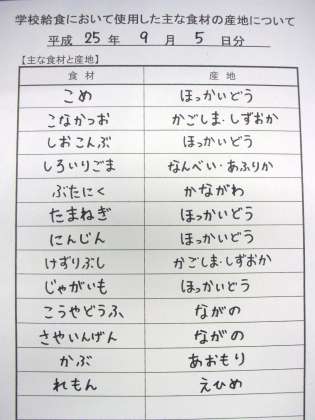 学校給食において使用した主な食材の産地について
平成 25 年 9 月 5 日分
【主な食材と産地】
食材 産地
こめ ほっかいどう
こなかつお かごしま・しずおか
しおこんぶ ほっかいどう
しろいりごま なんべい・あふりか
ぶたにく かながわ
たまねぎ ほっかいどう
にんじん ほっかいどう
けずりぶし かごしま・しずおか
じゃがいも ほっかいどう
こうやどうふ ながの
さやいんげん ながの
かぶ あおもり
れもん えひめ